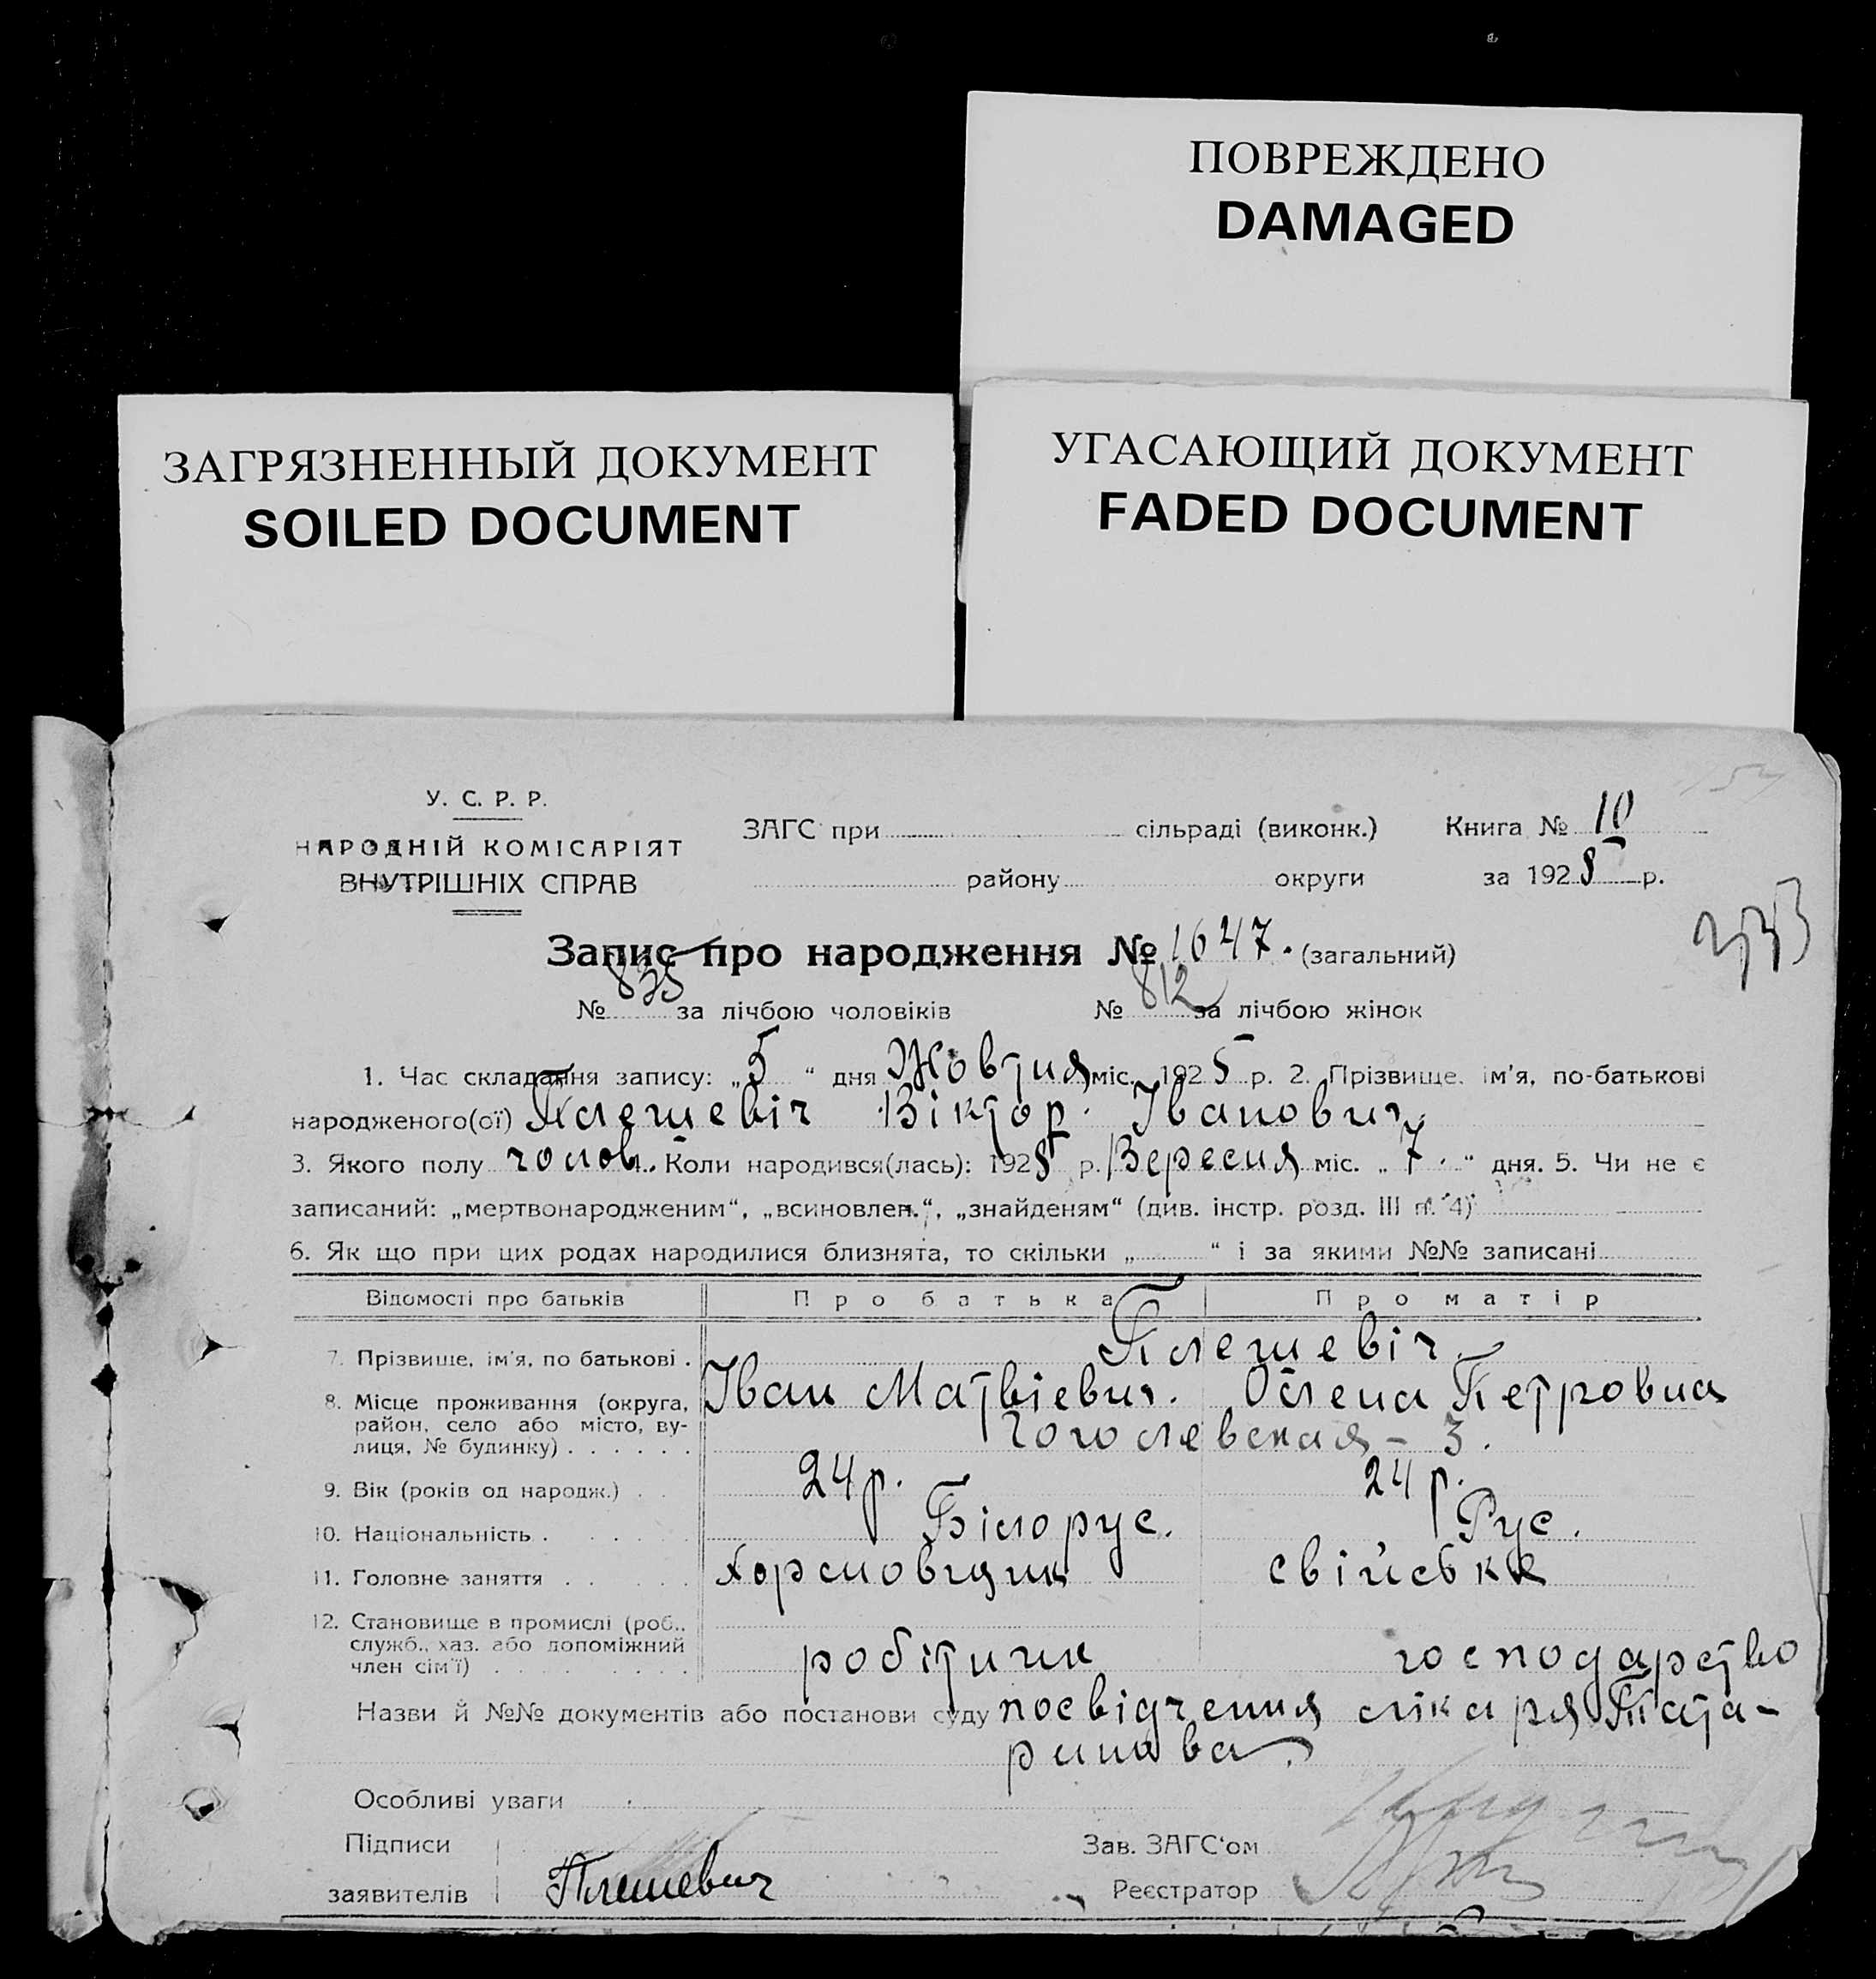 ПОВРЕЖДЕНО
DAMAGED
ЗАГРЯЗНЕННЫЙ ДОКУМЕНТ
SOILED DOCUMENT
УГАСАЮЩИЙ ДОКУМЕНТ
FADED DOCUMENT
У. С. Р. Р.
НАРОДНІЙ КОМІСАРІЯТ
ВНУТРІШНІХ СПРАВ
ЗАГС при сільраді (виконк.) Книга № 10
району округи за 1925 р.
Запис про народження № 1647. (загальний)
№ 835 за лічбою чоловіків № 812 за лічбою жінок
1. Час складання запису: „5“ дня Жовтня міс. 1925 р. 2. Прізвище, ім'я, по-батькові
народженого(ої) Плешевіч Віктор Іванович
3. Якого полу чолов. Коли народився(лась): 1925 р. Вересня міс. „7“ дня. 5. Чи не є
записаний: „мертвонародженим“, „всиновлен.“, „знайденям“ (див. інстр. розд. III п. 4)
6. Як що при цих родах народилися близнята, то скільки „ “ і за якими №№ записані
Відомості про батьків Про батька Про матір
7. Прізвище, ім'я, по батькові . Плешевіч
Іван Матвієвич. Олена Петровна
8. Місце проживання (округа, район, село або місто, вулиця, № будинку) . . . . . . Гоголевская - 3.
9. Вік (років од народж.) . . 24 р. 24 р.
10. Національність . Білорус. Рус.
11. Головне заняття . . свійське
12. Становище в промислі (роб., служб., хаз. або допоміжний член сім'ї) робітник господарство
Назви й №№ документів або постанови суду посвідчення лікаря Тата-
ринова.
Особливі уваги
Підписи
заявителів Плешевич
Зав. ЗАГС'ом
Реєстратор